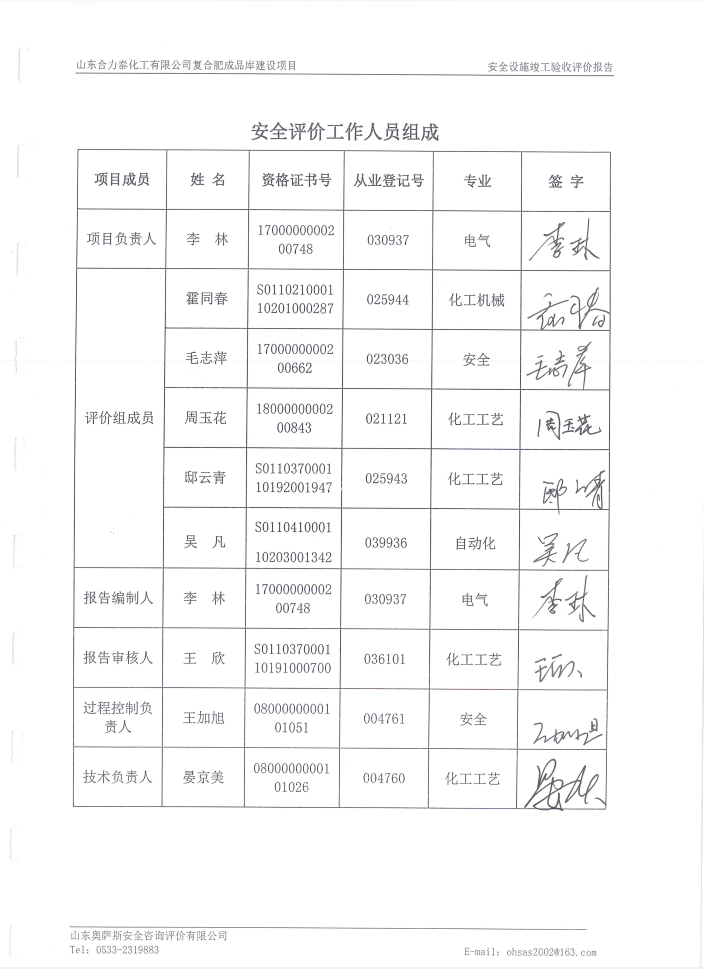 山东合力泰化工有限公司复合肥成品库建设项目 安全设施竣工验收评价报告
安全评价工作人员组成
项目成员 姓 名 资格证书号 从业登记号 专业 签 字
项目负责人 李 林 17000000002 00748 030937 电气 李林
评价组成员 霍同春 S0110210001 10201000287 025944 化工机械 霍同春
毛志萍 17000000002 00662 023036 安全 毛志萍
周玉花 18000000002 00843 021121 化工工艺 周玉花
邸云青 S0110370001 10192001947 025943 化工工艺 邸云青
吴 凡 S0110410001 10203001342 039936 自动化 吴凡
报告编制人 李 林 17000000002 00748 030937 电气 李林
报告审核人 王 欣 S0110370001 10191000700 036101 化工工艺 王欣
过程控制负责人 王加旭 08000000001 01051 004761 安全 王加旭
技术负责人 晏京美 08000000001 01026 004760 化工工艺
山东奥萨斯安全咨询评价有限公司
Tel: 0533-2319883 E-mail: ohsas2002@163.com